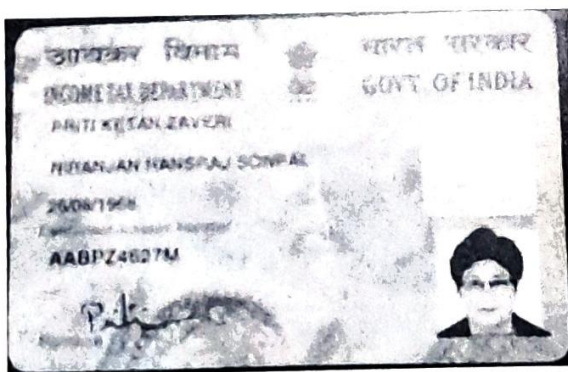 आयकर विभाग
भारत सरकार
INCOME TAX DEPARTMENT
GOVT. OF INDIA
PRITI KETAN ZAVERI
NIRANJAN HANSRAJ SONPAL
26/08/1968
Permanent Account Number
AABPZ4627M
Signature